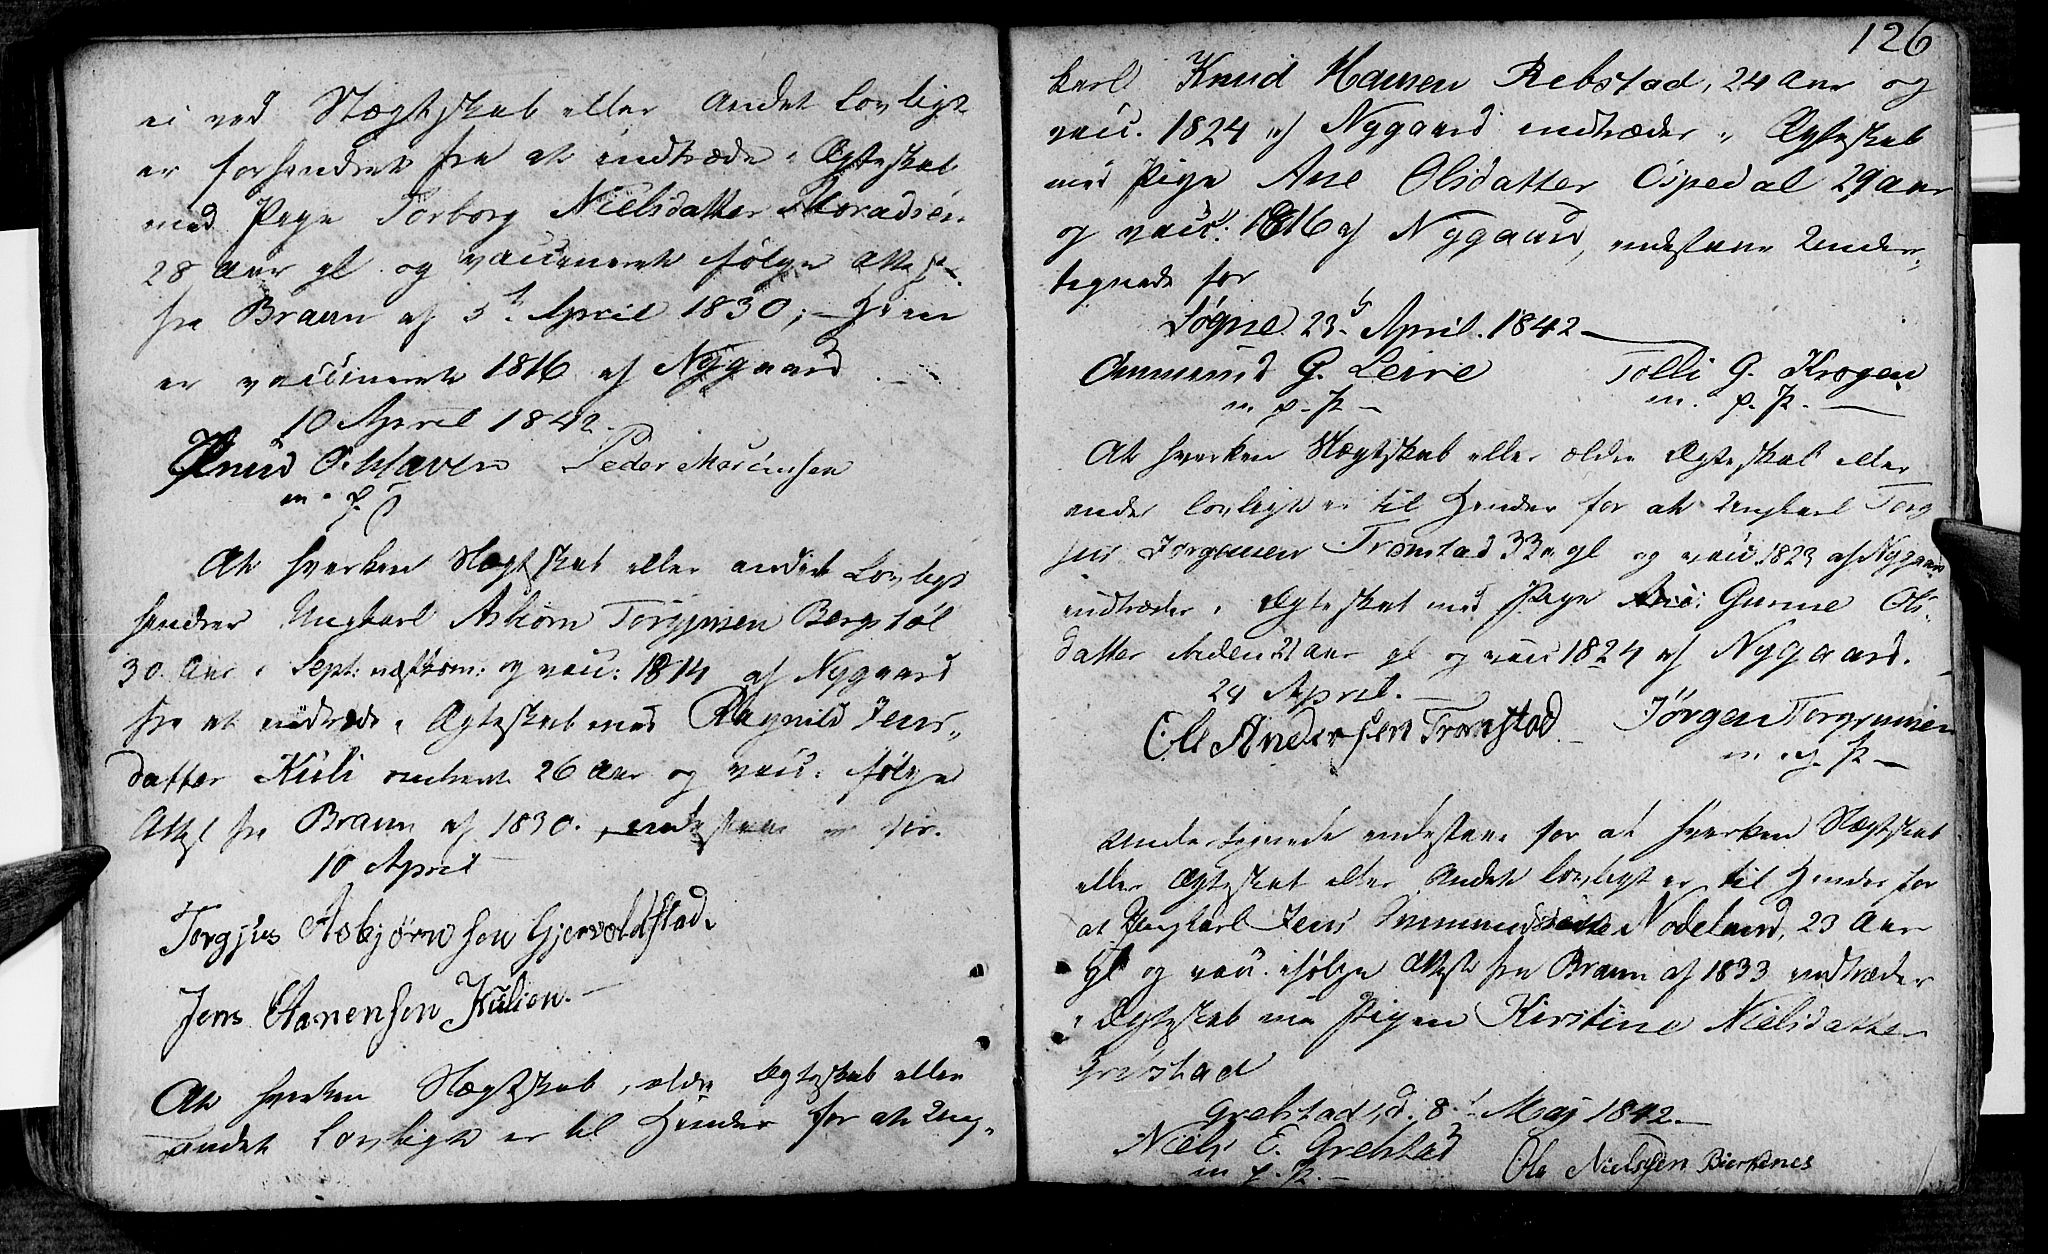 ei ved Slægtskab eller Andet Lovligt
er forhindret fra at indtræde i Ægteskab
med Pige Torborg Nielsdatter
28 Aar gl. og vaccineret ifølge Attest
fra Braun af 5t April 1830; – Han
er vaccineret 1816 af Nygaard. –
10 April 1842.
Knud O. Peder
m. p.
At hverken Slægtskab eller andet Lovligt
hindrer Ungkarl Asbiörn Torgjusen Bergstöl
30 Aar i Sept: næstkom: og vacc: 1814 af Nygaard
fra at indtræde i Ægteskab med Ragnild Jens-
datter Kuli omtrent 26 Aar og vacc: ifølge
Attest fra Braun af 1830. indestaae vi for.
10 April
Torgjus Asbjørnsen Gjervoldstad.
Jens Stanensen Kulien. –
At hverken Slægtskab, ældre Ægteskab eller
andet Lovligt er til Hinder for at Ung-
126
karl Knud Hansen Rebstad, 24 Aar og
vacc. 1824 af Nygaard indtræder i Ægteskab
med Pige Ane Olsdatter Ospedal 29 Aar
og vacc. 1816 af Nygaard, indestaae Under-
tegnede for
Søgne 23d April. 1842 –
Ammund G. Leire Tolli G. Krogen
m. p. P. – m. p. P. –
At hverken Slægtskab eller ældre Ægteskab eller
andet lovligt er til Hinder for at Ungkarl Torg
jus Jørgensen Tronstad 33 a gl og vacc. 1823 af Nygaard
indtræder i Ægteskab med Pige Gunne Ols-
datter 21 Aar gl og vacc 1824 af Nygaard.
24 April. –
Ole Andersen Tronstad – Jørgen Torgjussen
m. p. P. –
Undertegnede indestaae for at hverken Slægtskab
eller Ægteskab eller Andet lovligt er til Hinder for
at Ungkarl Jens Nodeland, 23 Aar
gl og vacc. ifølge Attest fra Braun af 1833 indtræder
i Ægteskab med Pigen Kirstine Nielsdatter
Grebstad
Grebstad, d. 8t Maj 1842. –
Niels E. Grebstad Ole Nielsen Bierkenes
m. p. P. –